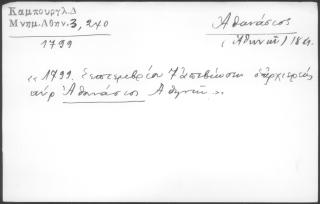 Καμπουργλ.Δ
Μνημ.Αθην.3, 240
1799
Ἀθανάσιος
(Ἀθηνῶν) 18ος.
« 1799. Σεπτεμβρίου 7 ἀπεβίωσεν ὁ ἀρχιερεύς
κύρ Ἀθανάσιος Ἀθηνῶν ».